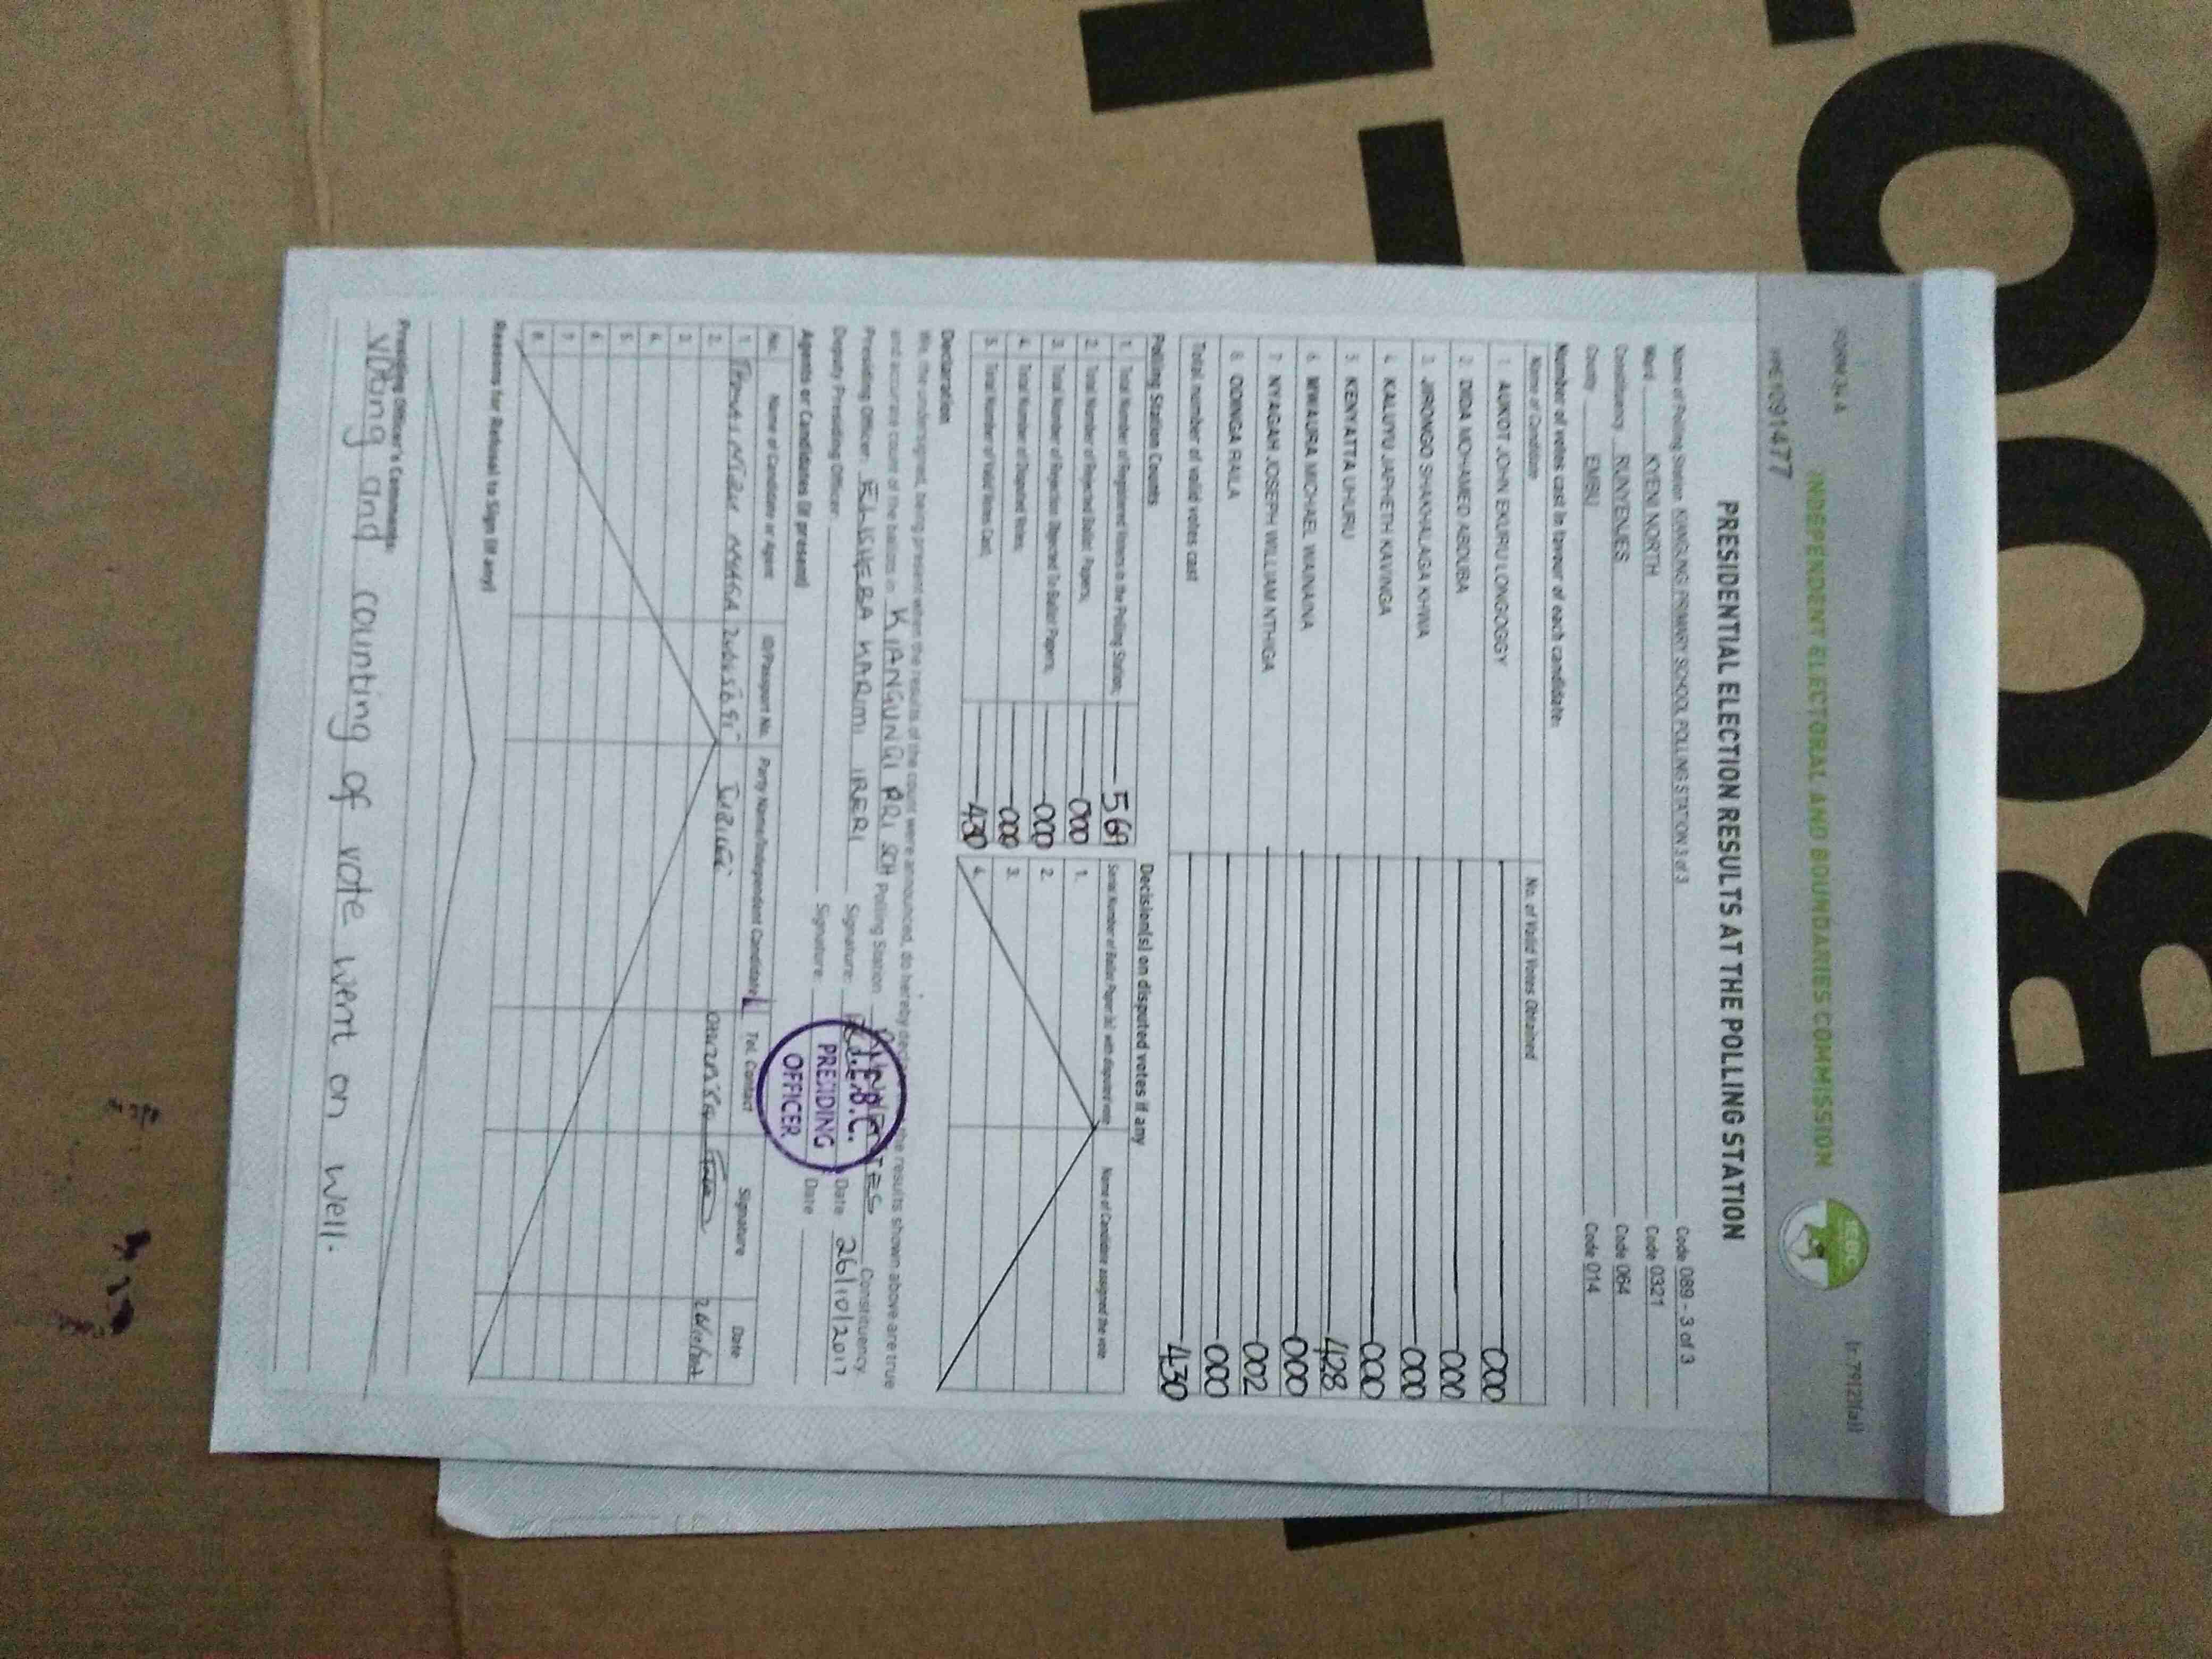 FORM 34 A
INDEPENDENT ELECTORAL AND BOUNDARIES COMMISSION
IEBC
(r.79(2)(a))
PRESIDENTIAL ELECTION RESULTS AT THE POLLING STATION
Name of Polling Station KIANGUNGI PRIMARY SCHOOL POLLING STATION 3 of 3 Code 089 - 3 of 3
Ward KYENI NORTH Code 0321
Constituency RUNYENJES Code 064
County EMBU Code 014
Number of votes cast in favour of each candidate:
Name of Candidate No. of Valid Votes Obtained
1. AUKOT JOHN EKURU LONGOGGY 000
2. DIDA MOHAMED ABDUBA 000
3. JIRONGO SHAKHALAGA KHWA 000
4. KALUYU JAPHETH KAVINGA 000
5. KENYATTA UHURU 428
6. MWAURA MICHAEL WAINAINA 000
7. NYAGAH JOSEPH WILLIAM NTHIGA 002
8. ODINGA RAILA 000
Total number of valid votes cast 430
Polling Station Counts
1. Total Number of Registered Voters in the Polling Station; 569
2. Total Number of Rejected Ballot Papers; 000
3. Total Number of Rejection Objected To Ballot Papers; 000
4. Total Number of Disputed Votes; 000
5. Total Number of Valid Votes Cast; 430
Decision(s) on disputed votes if any
Serial Number of Ballot Paper (s) with disputed vote Name of Candidate assigned the vote
1.
2.
3.
4.
Declaration
We, the undersigned, being present when the results of the count were announced, do hereby declare the results shown above are true
and accurate count of the ballots in KIANGUNGI PRI SCH Polling Station Constituency.
Presiding Officer: ELISHEBA KARIMI IRERI Signature: Date 26/10/2017
Deputy Presiding Officer: Signature: Date
I.E.B.C.
PRESIDING
OFFICER
Agents or Candidates (if present)
No. Name of Candidate or Agent ID/Passport No. Party Name/Independent Candidate Tel. Contact Signature Date
1. JUBILEE
2.
3.
4.
5.
6.
7.
8.
Reasons for Refusal to Sign (if any)
Presiding Officer's Comments:
Voting and counting of vote went on well.